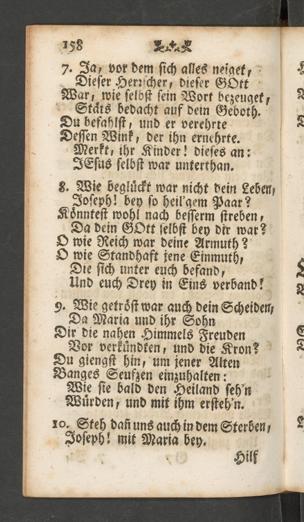 158
7. Ja, vor dem sich alles neiget,
Dieser Herrscher, dieser GOtt
War, wie selbst sein Wort bezeuget,
Stäts bedacht auf dein Geboth.
Du befahlst, und er verehrte
Dessen Wink, der ihn ernehrte.
Merkt, ihr Kinder! dieses an:
JEsus selbst war unterthan.
8. Wie beglückt war nicht dein Leben,
Joseph! bey so heil'gem Paar?
Könntest wohl nach besserm streben,
Da dein GOtt selbst bey dir war?
O wie Reich war deine Armuth?
O wie Standhaft jene Einmuth,
Die sich unter euch befand,
Und euch Drey in Eins verband!
9. Wie getröst war auch dein Scheiden,
Da Maria und ihr Sohn
Dir die nahen Himmels Freuden
Vor verkündten, und die Kron?
Du giengst hin, um jener Alten
Banges Seufzen einzuhalten:
Wie sie bald den Heiland seh'n
Würden, und mit ihm ersteh'n.
10. Steh dan̄ uns auch in dem Sterben,
Joseph! mit Maria bey.
Hilf